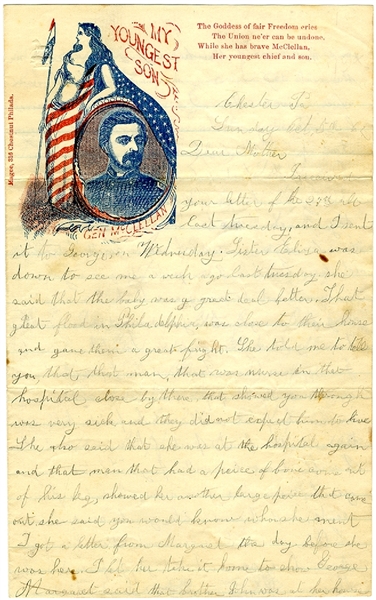 MY
YOUNGEST
SON
The Goddess of fair Freedom cries
The Union ne'er can be undone,
While she has brave McClellan,
Her youngest chief and son.
GEN McCLELLAN
Magee, 316 Chestnut Philada.
Chester Pa
Sunday Oct 5th
Dear Mother
I received
your letter of the 27th
last tuesday, and I sent
it to George on Wednesday. Sister was
down to see me a week ago last tuesday she
said that the baby was a great deal better. That
great flood in Philadelphia, was close to their house
and gave them a great fright. She told me to tell
you, that, that man, that was nurse in the
hospital close by there, that showed you through
was very sick and they did not expect him to live
She also said that she was at the hospital again
and that man that had a peice of bone come out
of his leg, showed her another large peice that came
out she said you would know who she ment
I got a letter from Margaret the day before she
was here I let her take it home to show George
Margaret said that brother John was at her